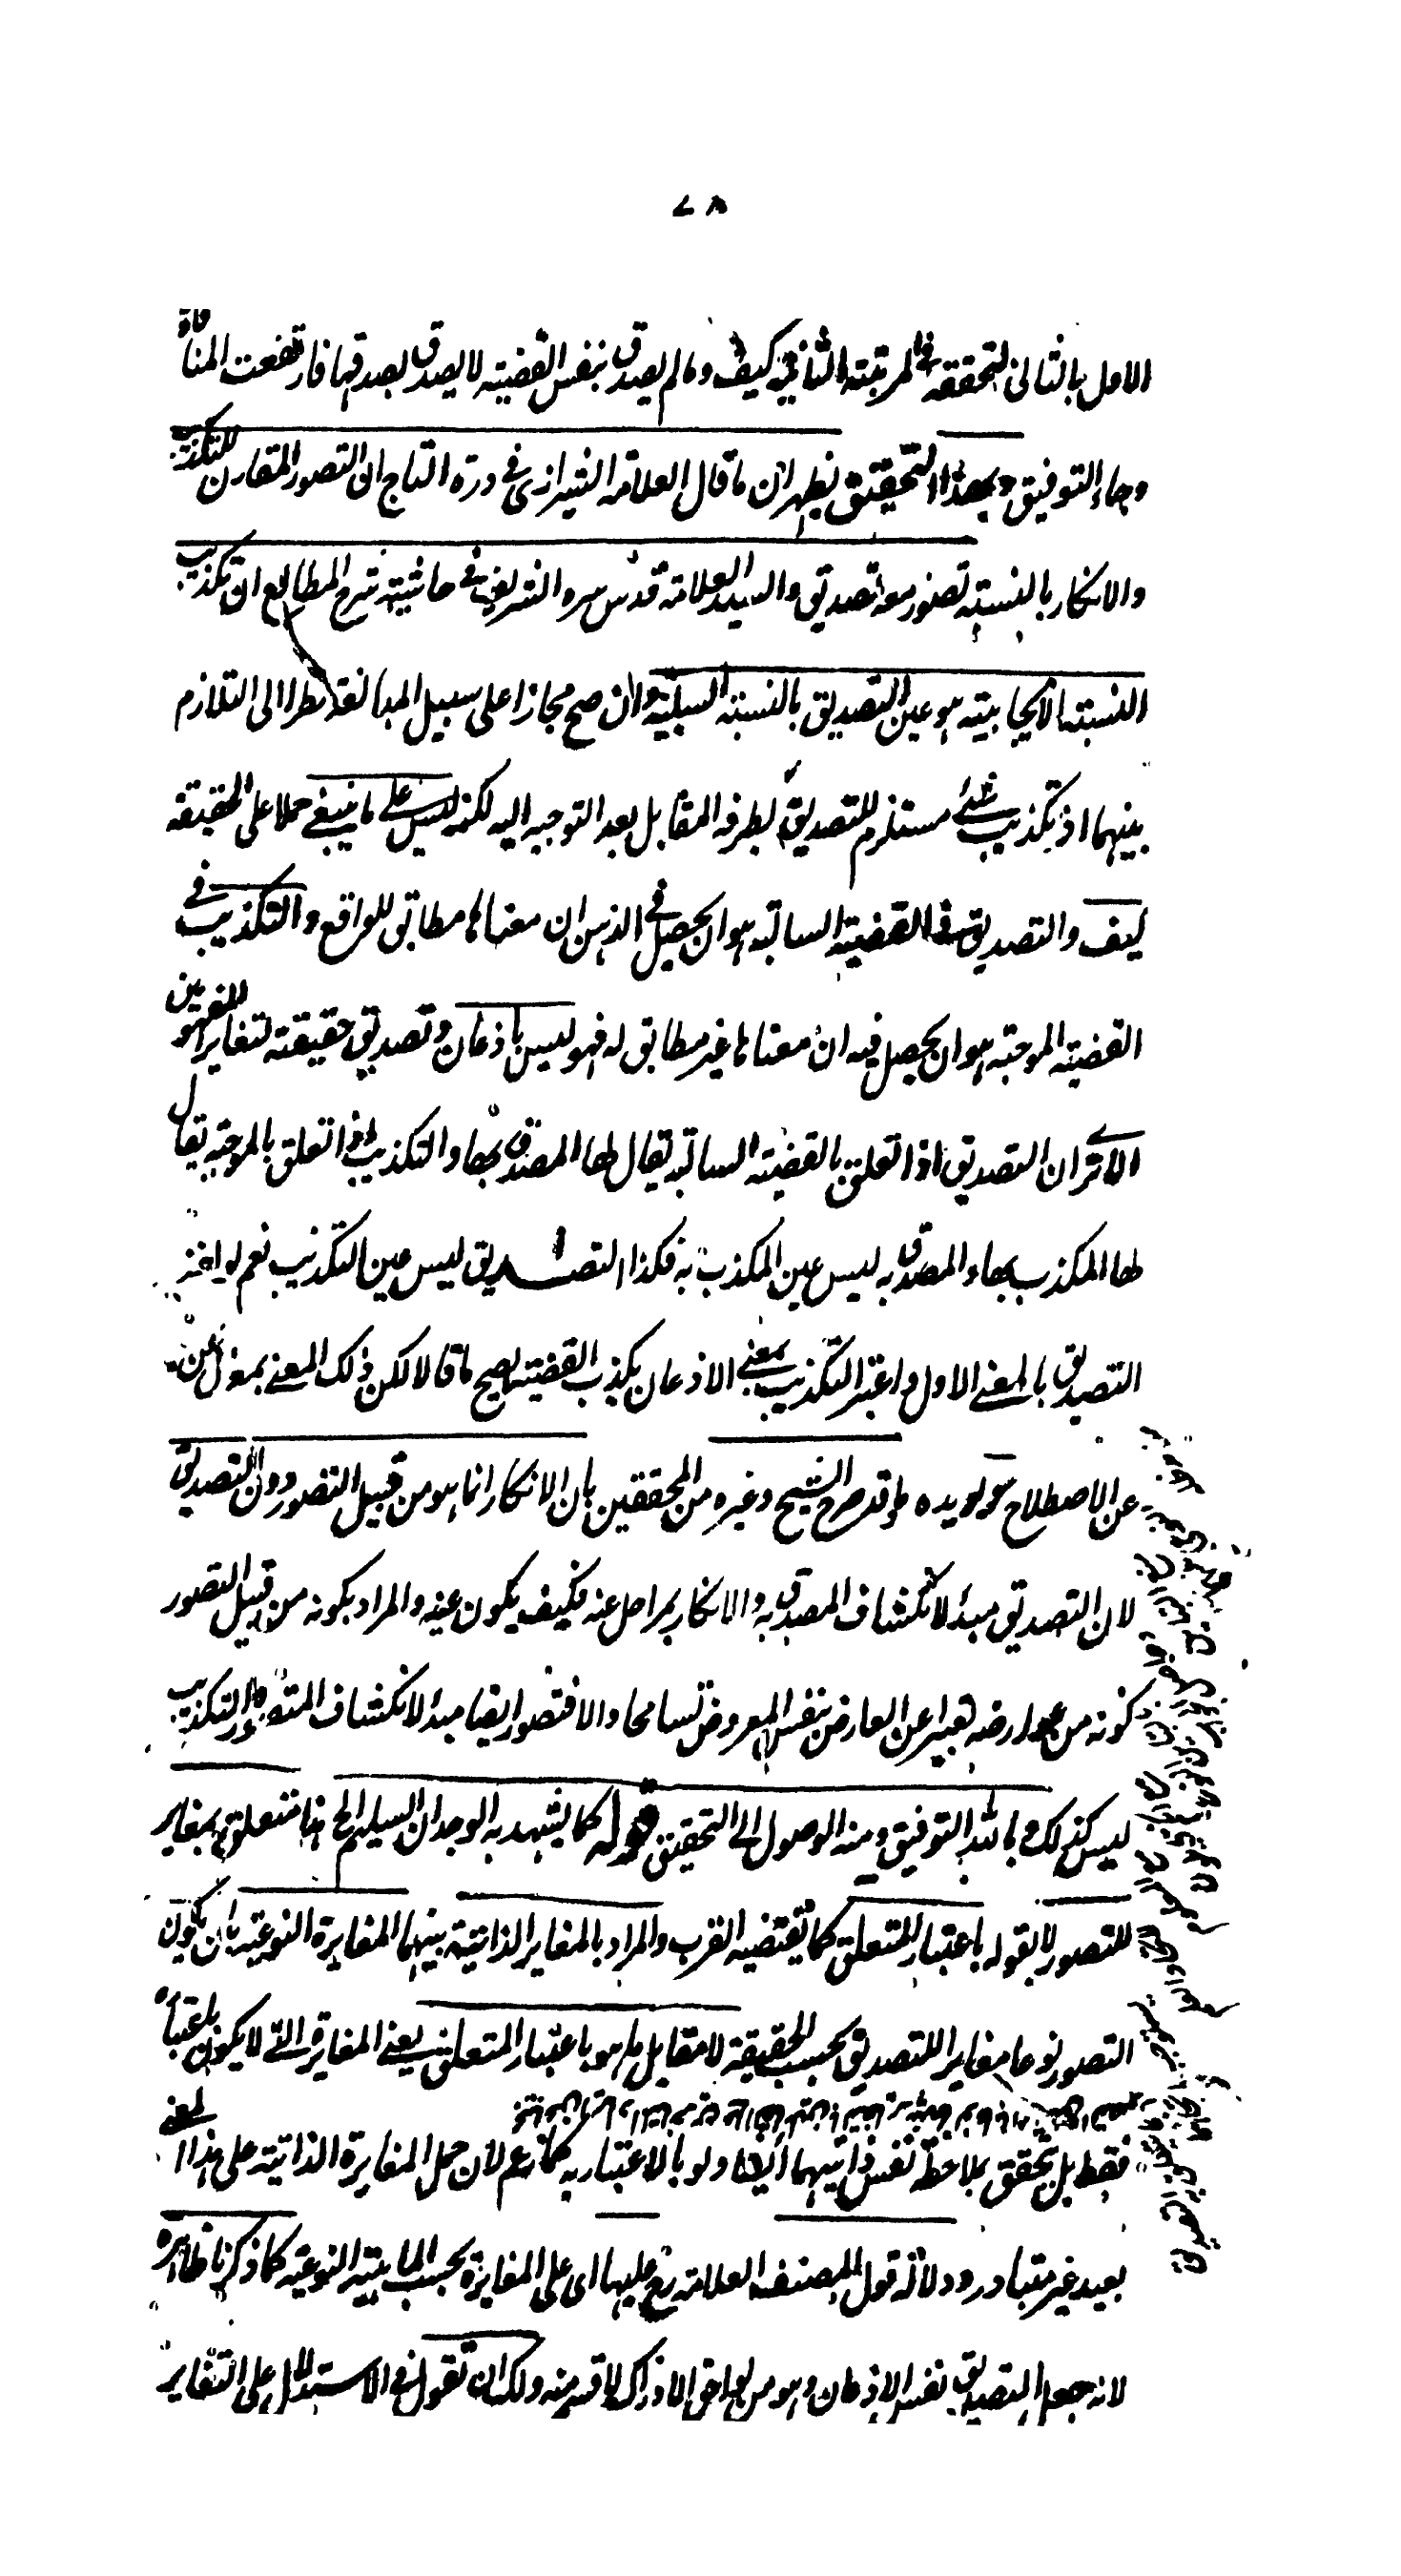 ٧٨
الاول بالثانى لتحققه فى المرتبة الثانية كيف وما لم يصدق بنفس القضية لا يصدق بصدقها فارتفعت المنافاة
وجاء التوفيق وبهذا التحقيق يظهر ان ما قال العلامة الشيرازى فى درة التاج ان التصور المقارن للتكذيب
والانكار بالنسبة تصور معه تصديق والسيد العلامة قدس سره الشريف فى حاشية شرح المطالع ان تكذيب
النسبة الايجابية هو عين التصديق بالنسبة السلبية وان صح مجازا على سبيل المبالغة نظرا الى التلازم
بينهما اذ تكذيب شئ مستلزم للتصديق لطرفه المقابل بعد التوجيه اليه لكنه ليس على ما ينبغى حملا على الحقيقة
كيف والتصديق فى القضية السالبة هو ان يحصل فى الذهن ان معناها مطابق للواقع والتكذيب فى
القضية الموجبة هو ان يحصل فيه ان معناها غير مطابق له فهو ليس باذعان وتصديق حقيقته لتغاير المفهومين
الا ترى ان التصديق اذا تعلق بالقضية السالبة يقال لها المصدق بها والتكذيب اذا تعلق بالموجبة يقال
لها المكذب بها والمصدق به ليس عين المكذب به فكذا التصديق ليس عين التكذيب نعم لو اخذ
التصديق بالمعنى الاول واعتبر التكذيب بمعنى الاذعان بكذب القضية يصح ما قالا لكن ذلك المعنى بمعزل عن
عن الاصطلاح هو يؤيده ما قد صرح الشيخ وغيره من المحققين بان الانكار انما هو من قبيل التصور دون التصديق
لان التصديق مبدأ لانكشاف المصدق به والانكار بمراحل عنه فكيف يكون عينه والمراد بكونه من قبيل التصور
كونه من عوارضه تعبيرا عن العارض بنفس المعروض تسامحا والا فتصور ايضا مبدأ لانكشاف المتصور والتكذيب
ليس كذلك وبالله التوفيق ومنه الوصول الى التحقيق قوله كما يشهد به الوجدان السليم الخ هذا متعلق بمغاير
للتصور لا بقوله باعتبار المتعلق كما يقتضيه القرب والمراد بالمغاير الذاتية بينهما المغايرة النوعية بان يكون
التصور نوعا مغايرا للتصديق بحسب الحقيقة لا مقابل ما هو باعتبار المتعلق يعنى المغايرة التى لا يكون باعتباره
فقط بل يتحقق بملاحظة نفس ذاتيهما ايضا ولو بالاعتبار به كما زعم لان حمل المغايرة الذاتية على هذا المعنى
بعيد غير متبادر ودلالة قول المصنف العلامة رح عليها اى على المغايرة بحسب الماهية النوعية كما ذكرنا ظاهرة
لانه جعل التصديق نفس الاذعان وهو من لواحق الادراك لا قسم منه ولك ان تقول فى الاستدلال على التغاير